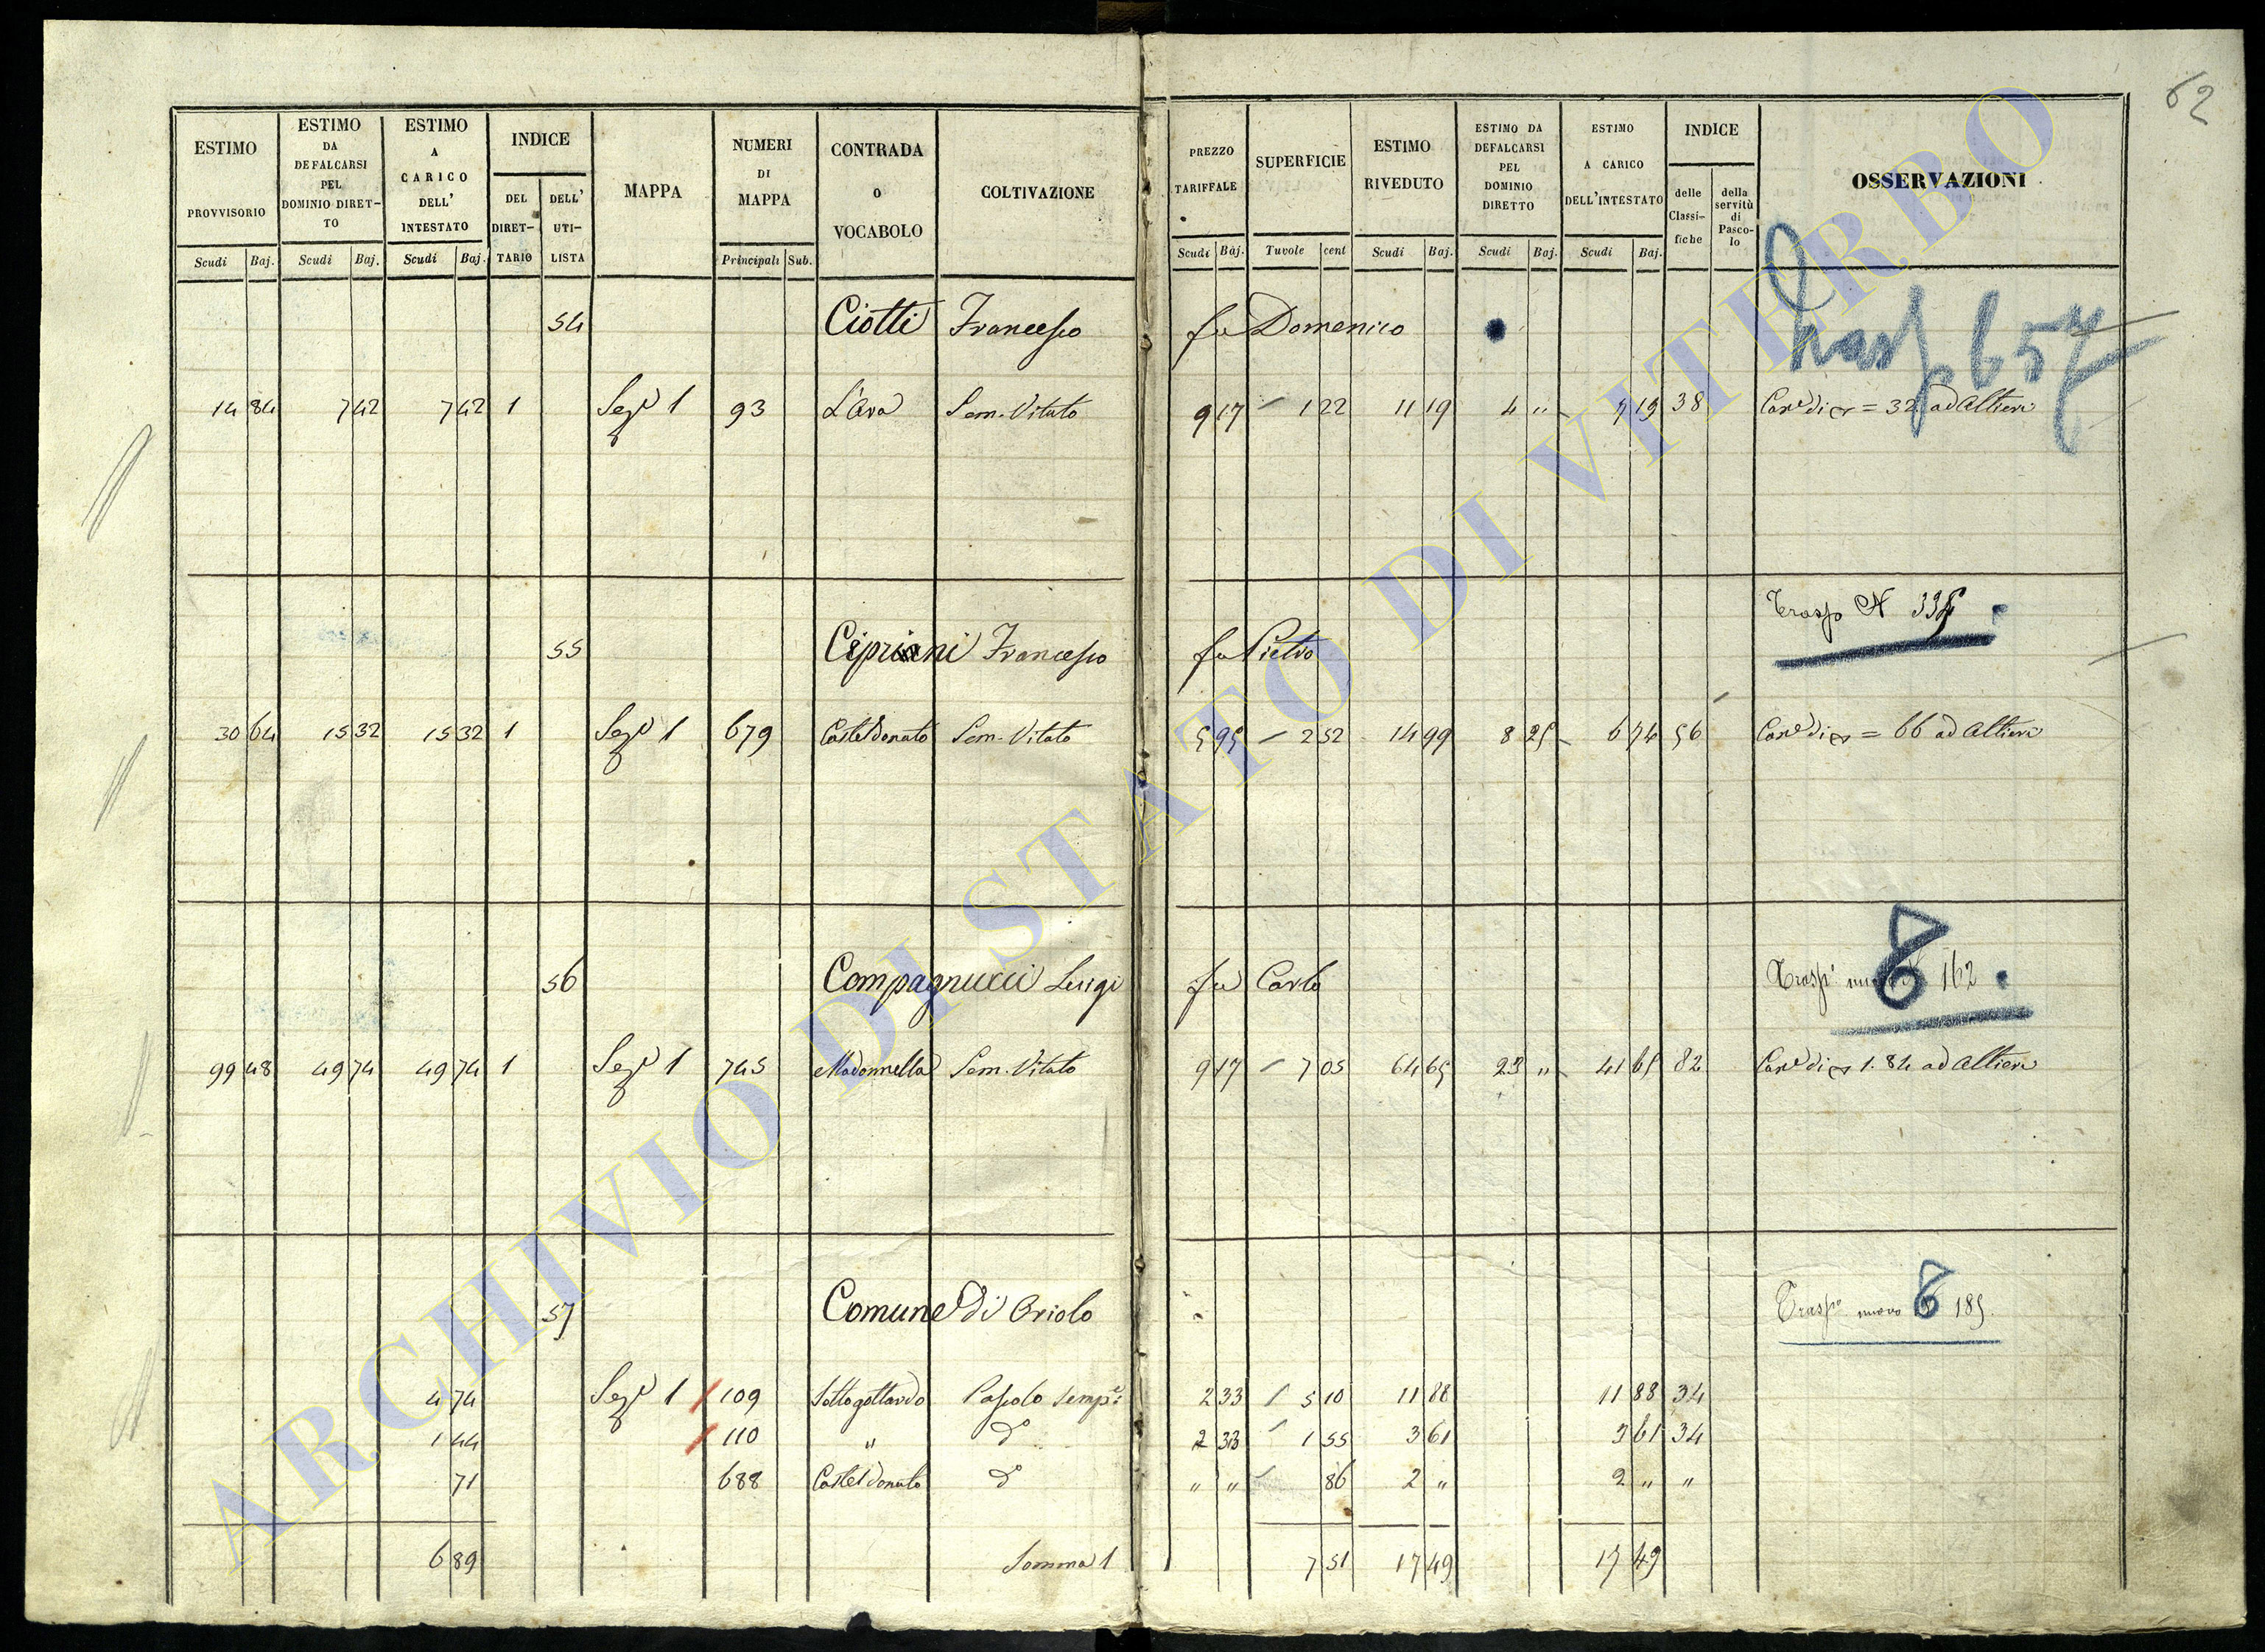 62
ESTIMO PROVVISORIO Scudi Baj.
ESTIMO DA DEFALCARSI PEL DOMINIO DIRET-TO Scudi Baj.
ESTIMO A CARICO DELL' INTESTATO Scudi Baj.
INDICE DEL DIRET-TARIO DELL' UTI-LISTA
MAPPA
NUMERI DI MAPPA Principali Sub.
CONTRADA o VOCABOLO
COLTIVAZIONE
PREZZO TARIFFALE Scudi Baj.
SUPERFICIE Tavole cent
ESTIMO RIVEDUTO Scudi Baj.
ESTIMO DA DEFALCARSI PEL DOMINIO DIRETTO Scudi Baj.
ESTIMO A CARICO DELL'INTESTATO Scudi Baj.
INDICE delle Classi-fiche della servitù di Pasco-lo
OSSERVAZIONI
54 Ciotti Francesco fu Domenico
Trasp 657
14 84 7 42 7 42 1 Sez.e 1 93 L'Ara Sem. Vitato 9 17 1 22 11 19 4 " 7 19 38 = 32 ad Altieri
Trasp N 335
55 Cipriani Francesco fu Pietro
30 64 15 32 15 32 1 Sez.e 1 679 Casteldonato Sem. Vitato 5 95 2 52 14 99 8 25 6 74 56 = 66 ad Altieri
56 Compagnucci Luigi fu Carlo Trasp 8 162
99 48 49 74 49 74 1 Sez.e 1 745 Madonnella Sem. Vitato 9 17 7 05 64 65 23 " 41 65 82 1.84 ad Altieri
57 Comune di Oriolo Trasp.o nuovo 8 185
4 74 Sez.e 1 109 Sottogottardo Pascolo semp.e 2 33 5 10 11 88 11 88 34
1 44 110 " d.o 2 33 1 55 3 61 3 61 34
71 688 Casteldonato d.o " " 86 2 " 2 " "
6 89 Somma 1 7 51 17 49 17 49
ARCHIVIO DI STATO DI VITERBO